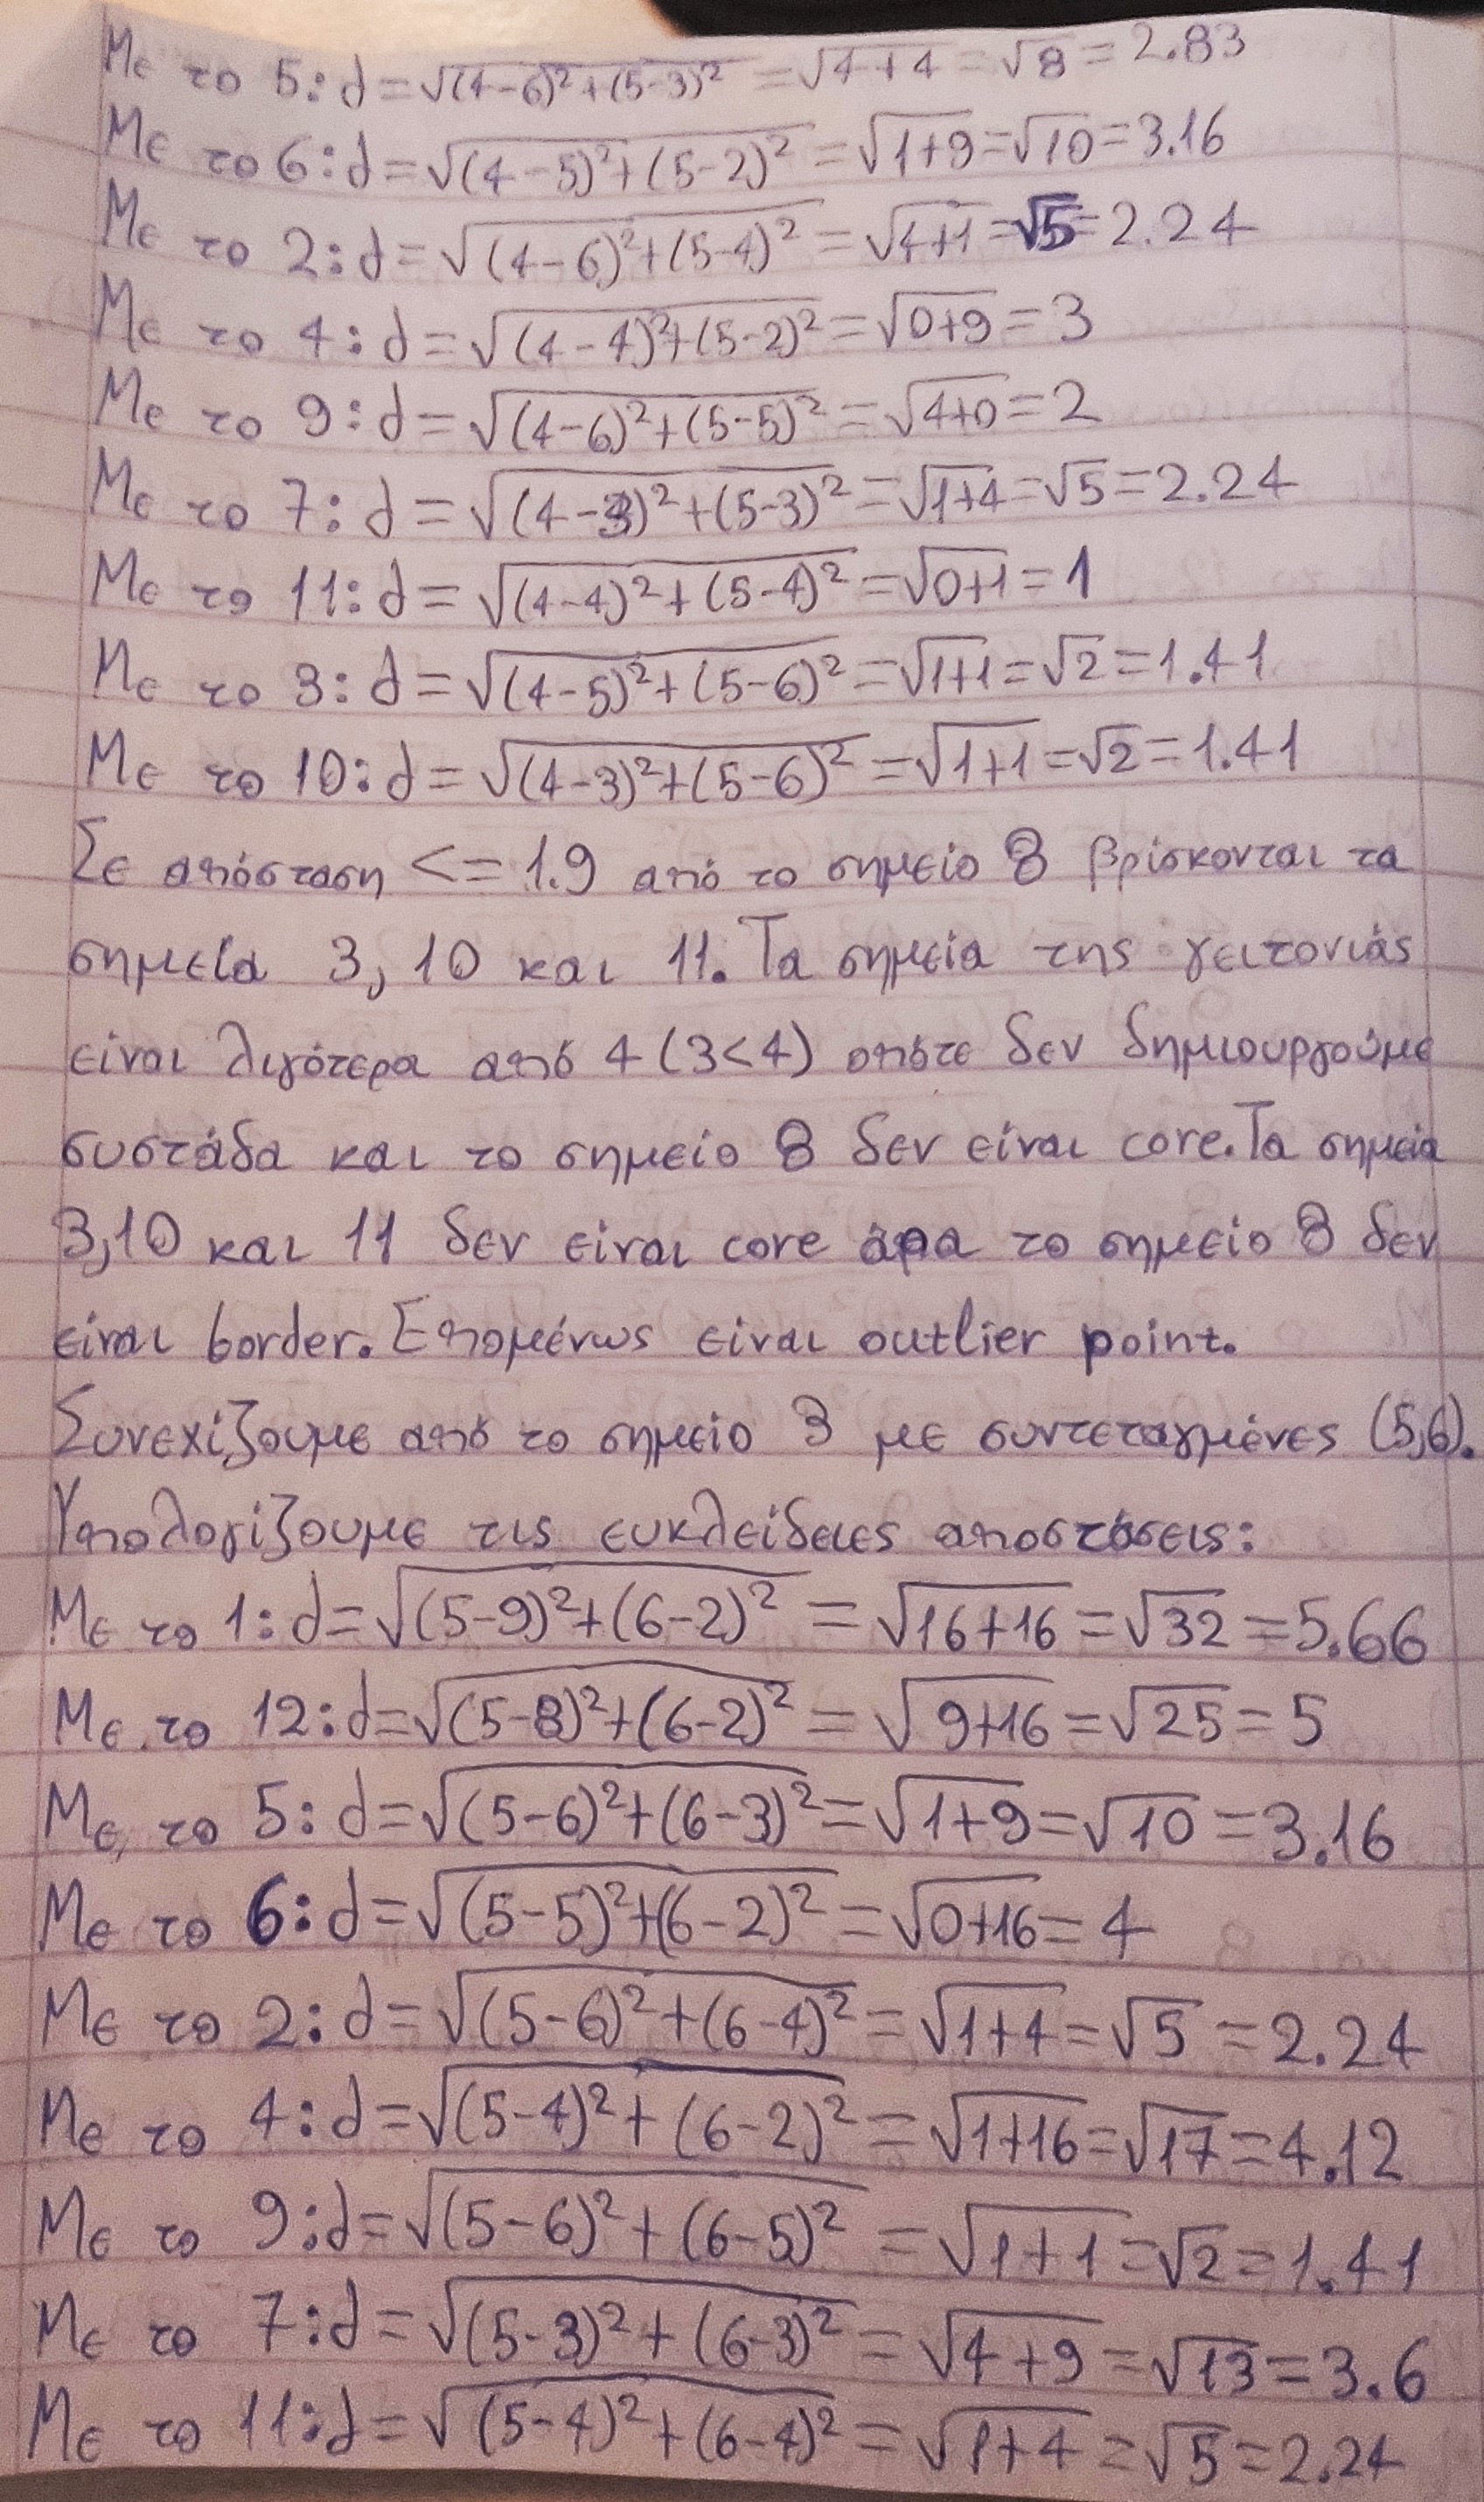 Με το 5: d=√(4-6)²+(5-3)² =√4+4=√8=2.83
Με το 6: d=√(4-5)²+(5-2)² =√1+9=√10=3.16
Με το 2: d=√(4-6)²+(5-4)² =√4+1=√5=2.24
Με το 4: d=√(4-4)²+(5-2)² =√0+9=3
Με το 9: d=√(4-6)²+(5-5)² =√4+0=2
Με το 7: d=√(4-3)²+(5-3)² =√1+4=√5=2.24
Με το 11: d=√(4-4)²+(5-4)² =√0+1=1
Με το 3: d=√(4-5)²+(5-6)² =√1+1=√2=1.41
Με το 10: d=√(4-3)²+(5-6)² =√1+1=√2=1.41
Σε απόσταση <=1.9 από το σημείο 8 βρίσκονται τα
σημεία 3, 10 και 11. Τα σημεία της γειτονιάς
είναι λιγότερα από 4 (3<4) οπότε δεν δημιουργούμε
συστάδα και το σημείο 8 δεν είναι core. Τα σημεία
3,10 και 11 δεν είναι core άρα το σημείο 8 δεν
είναι border. Επομένως είναι outlier point.
Συνεχίζουμε από το σημείο 3 με συντεταγμένες (5,6).
Υπολογίζουμε τις ευκλείδειες αποστάσεις:
Με το 1: d=√(5-9)²+(6-2)² =√16+16=√32=5.66
Με το 12: d=√(5-8)²+(6-2)² =√9+16=√25=5
Με το 5: d=√(5-6)²+(6-3)² =√1+9=√10=3.16
Με το 6: d=√(5-5)²+(6-2)² =√0+16=4
Με το 2: d=√(5-6)²+(6-4)² =√1+4=√5=2.24
Με το 4: d=√(5-4)²+(6-2)² =√1+16=√17=4.12
Με το 9: d=√(5-6)²+(6-5)² =√1+1=√2=1.41
Με το 7: d=√(5-3)²+(6-3)² =√4+9=√13=3.6
Με το 11: d=√(5-4)²+(6-4)² =√1+4=√5=2.24